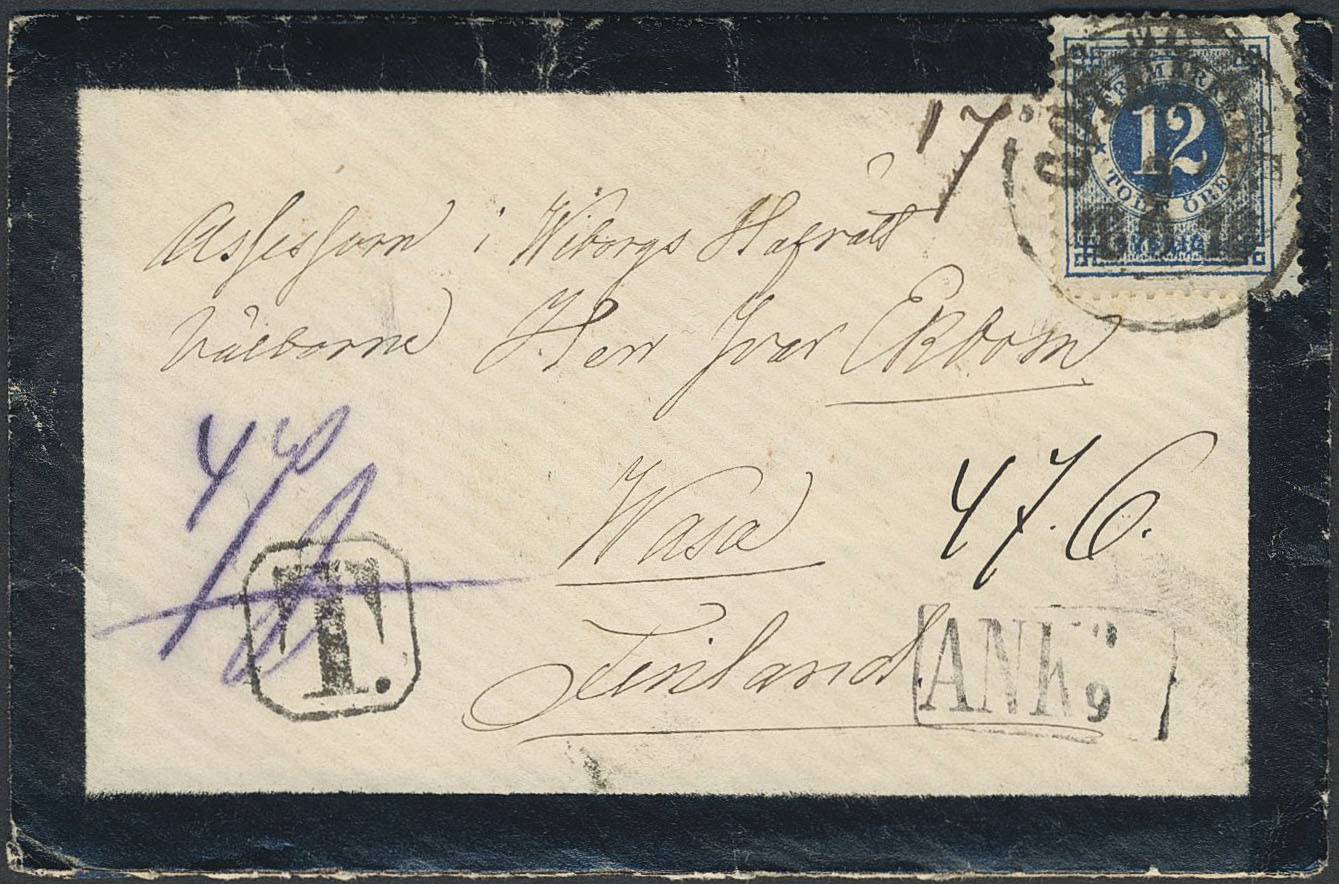 17
FRIMÄRKE
12
TOLF ÖRE
SVERIGE
Assessorn i Wiborgs Hofrätt
Välborne Herr Ivar Ekbom
Wasa
Finland
47.6.
T.
ANK
9